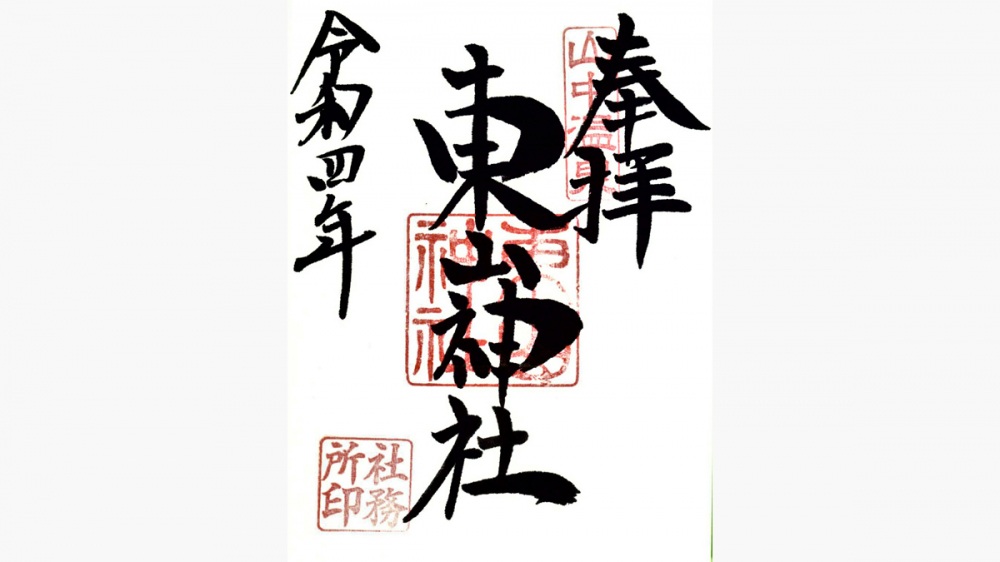 奉拝
山中温泉
東山神社
東山神社
令和四年
社務所印